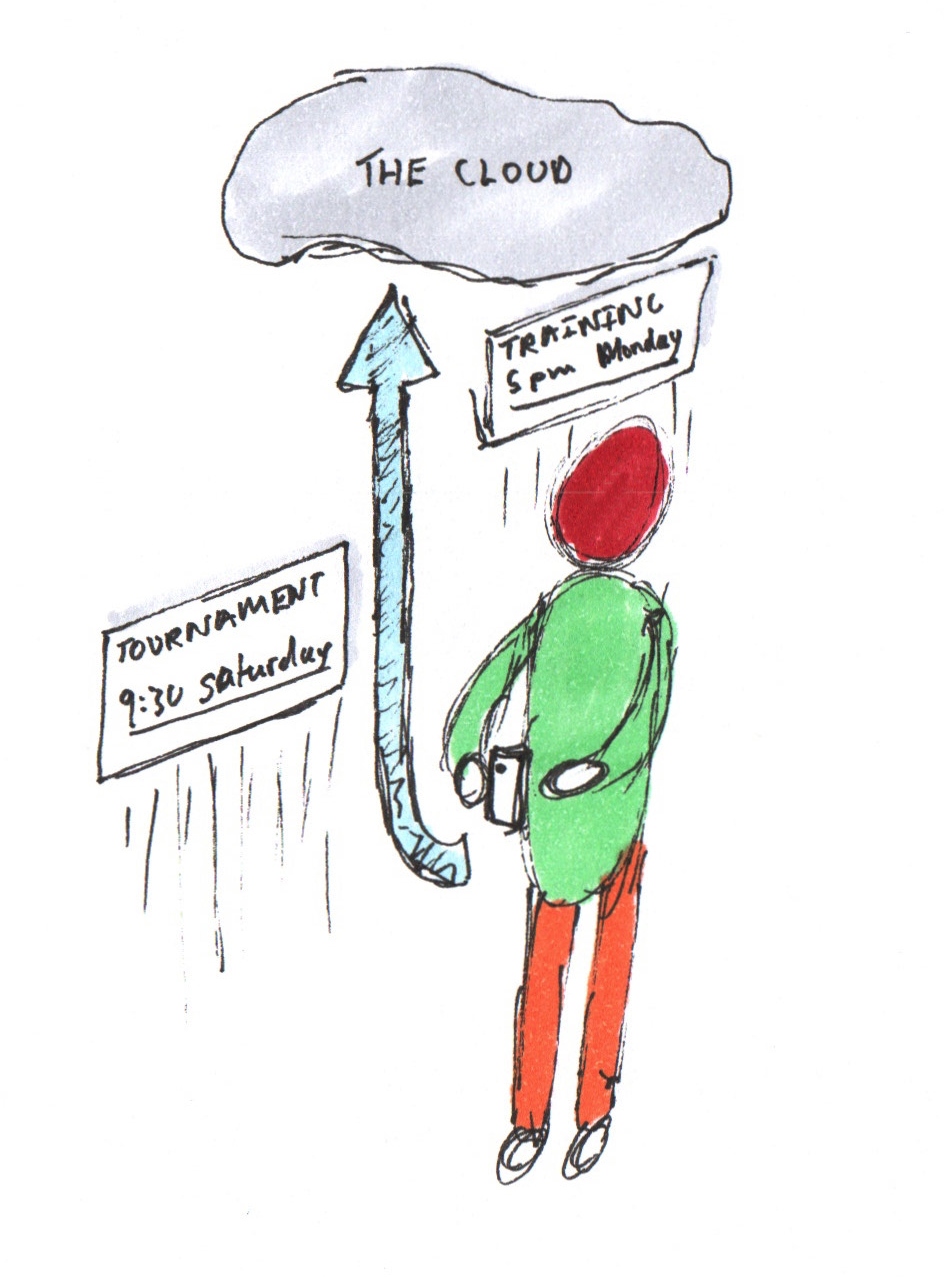 THE CLOUD
TRAINING
5pm Monday
TOURNAMENT
9:30 saturday